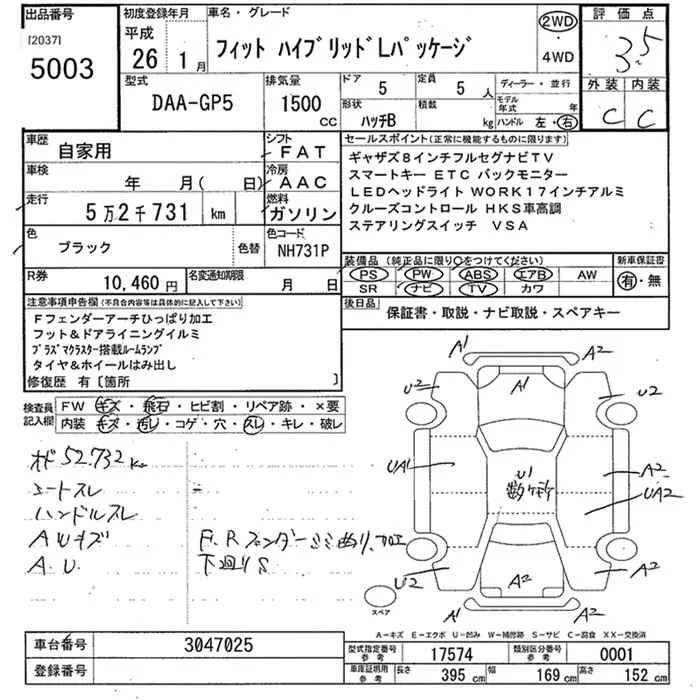 出品番号
[2037]
5003
初度登録年月
平成
26 1月
車名・グレード
フィット ハイブリッドLパッケージ
2WD
・
4WD
評価点
3.5
外装 内装
C C
型式
DAA-GP5
排気量
1500
CC
ドア
5
定員
5人
形状
ハッチB
積載
kg
ディーラー・並行
モデル年式 年
ハンドル 左・右
車歴
自家用
シフト
FAT
車検
年 月( 日)
冷房
AAC
走行
5万2千731 km
燃料
ガソリン
色
ブラック
色替
色コード
NH731P
R券
10,460円
名変通知期限
月 日
セールスポイント(正常に機能するものに限ります)
ギャザズ8インチフルセグナビTV
スマートキー ETC バックモニター
LEDヘッドライト WORK17インチアルミ
クルーズコントロール HKS車高調
ステアリングスイッチ VSA
装備品(純正品に限り○をつけてください)
PS PW ABS エアB AW
SR ナビ TV カワ
新車保証書
有・無
後日品
保証書・取説・ナビ取説・スペアキー
注意事項申告欄(不具合内容等は具体的に記入して下さい)
Fフェンダーアーチひっぱり加工
フット&ドアライニングイルミ
プラズマクラスター搭載ルームランプ
タイヤ&ホイールはみ出し
修復歴 有〔箇所 〕
検査員記入欄
FW キズ・飛石・ヒビ割・リペア跡・×要
内装 キズ・汚レ・コゲ・穴・スレ・キレ・破レ
52.732 km
シートスレ
ハンドルスレ
AWキズ
A.U.
F.Rフェンダー
下廻りS
A1
A2
A1
U2
U2
UA1
U1
数ヶ所
A2
UA2
U2
A2
A2
A1
A2
スペア
A－キズ E－エクボ U－凹み W－補修跡 S－サビ C－腐食 XX－交換済
車台番号
3047025
登録番号
型式指定番号
参考
17574
類別区分番号
参考
0001
車庫証明用
参考
長さ 395 cm
幅 169 cm
高さ 152 cm